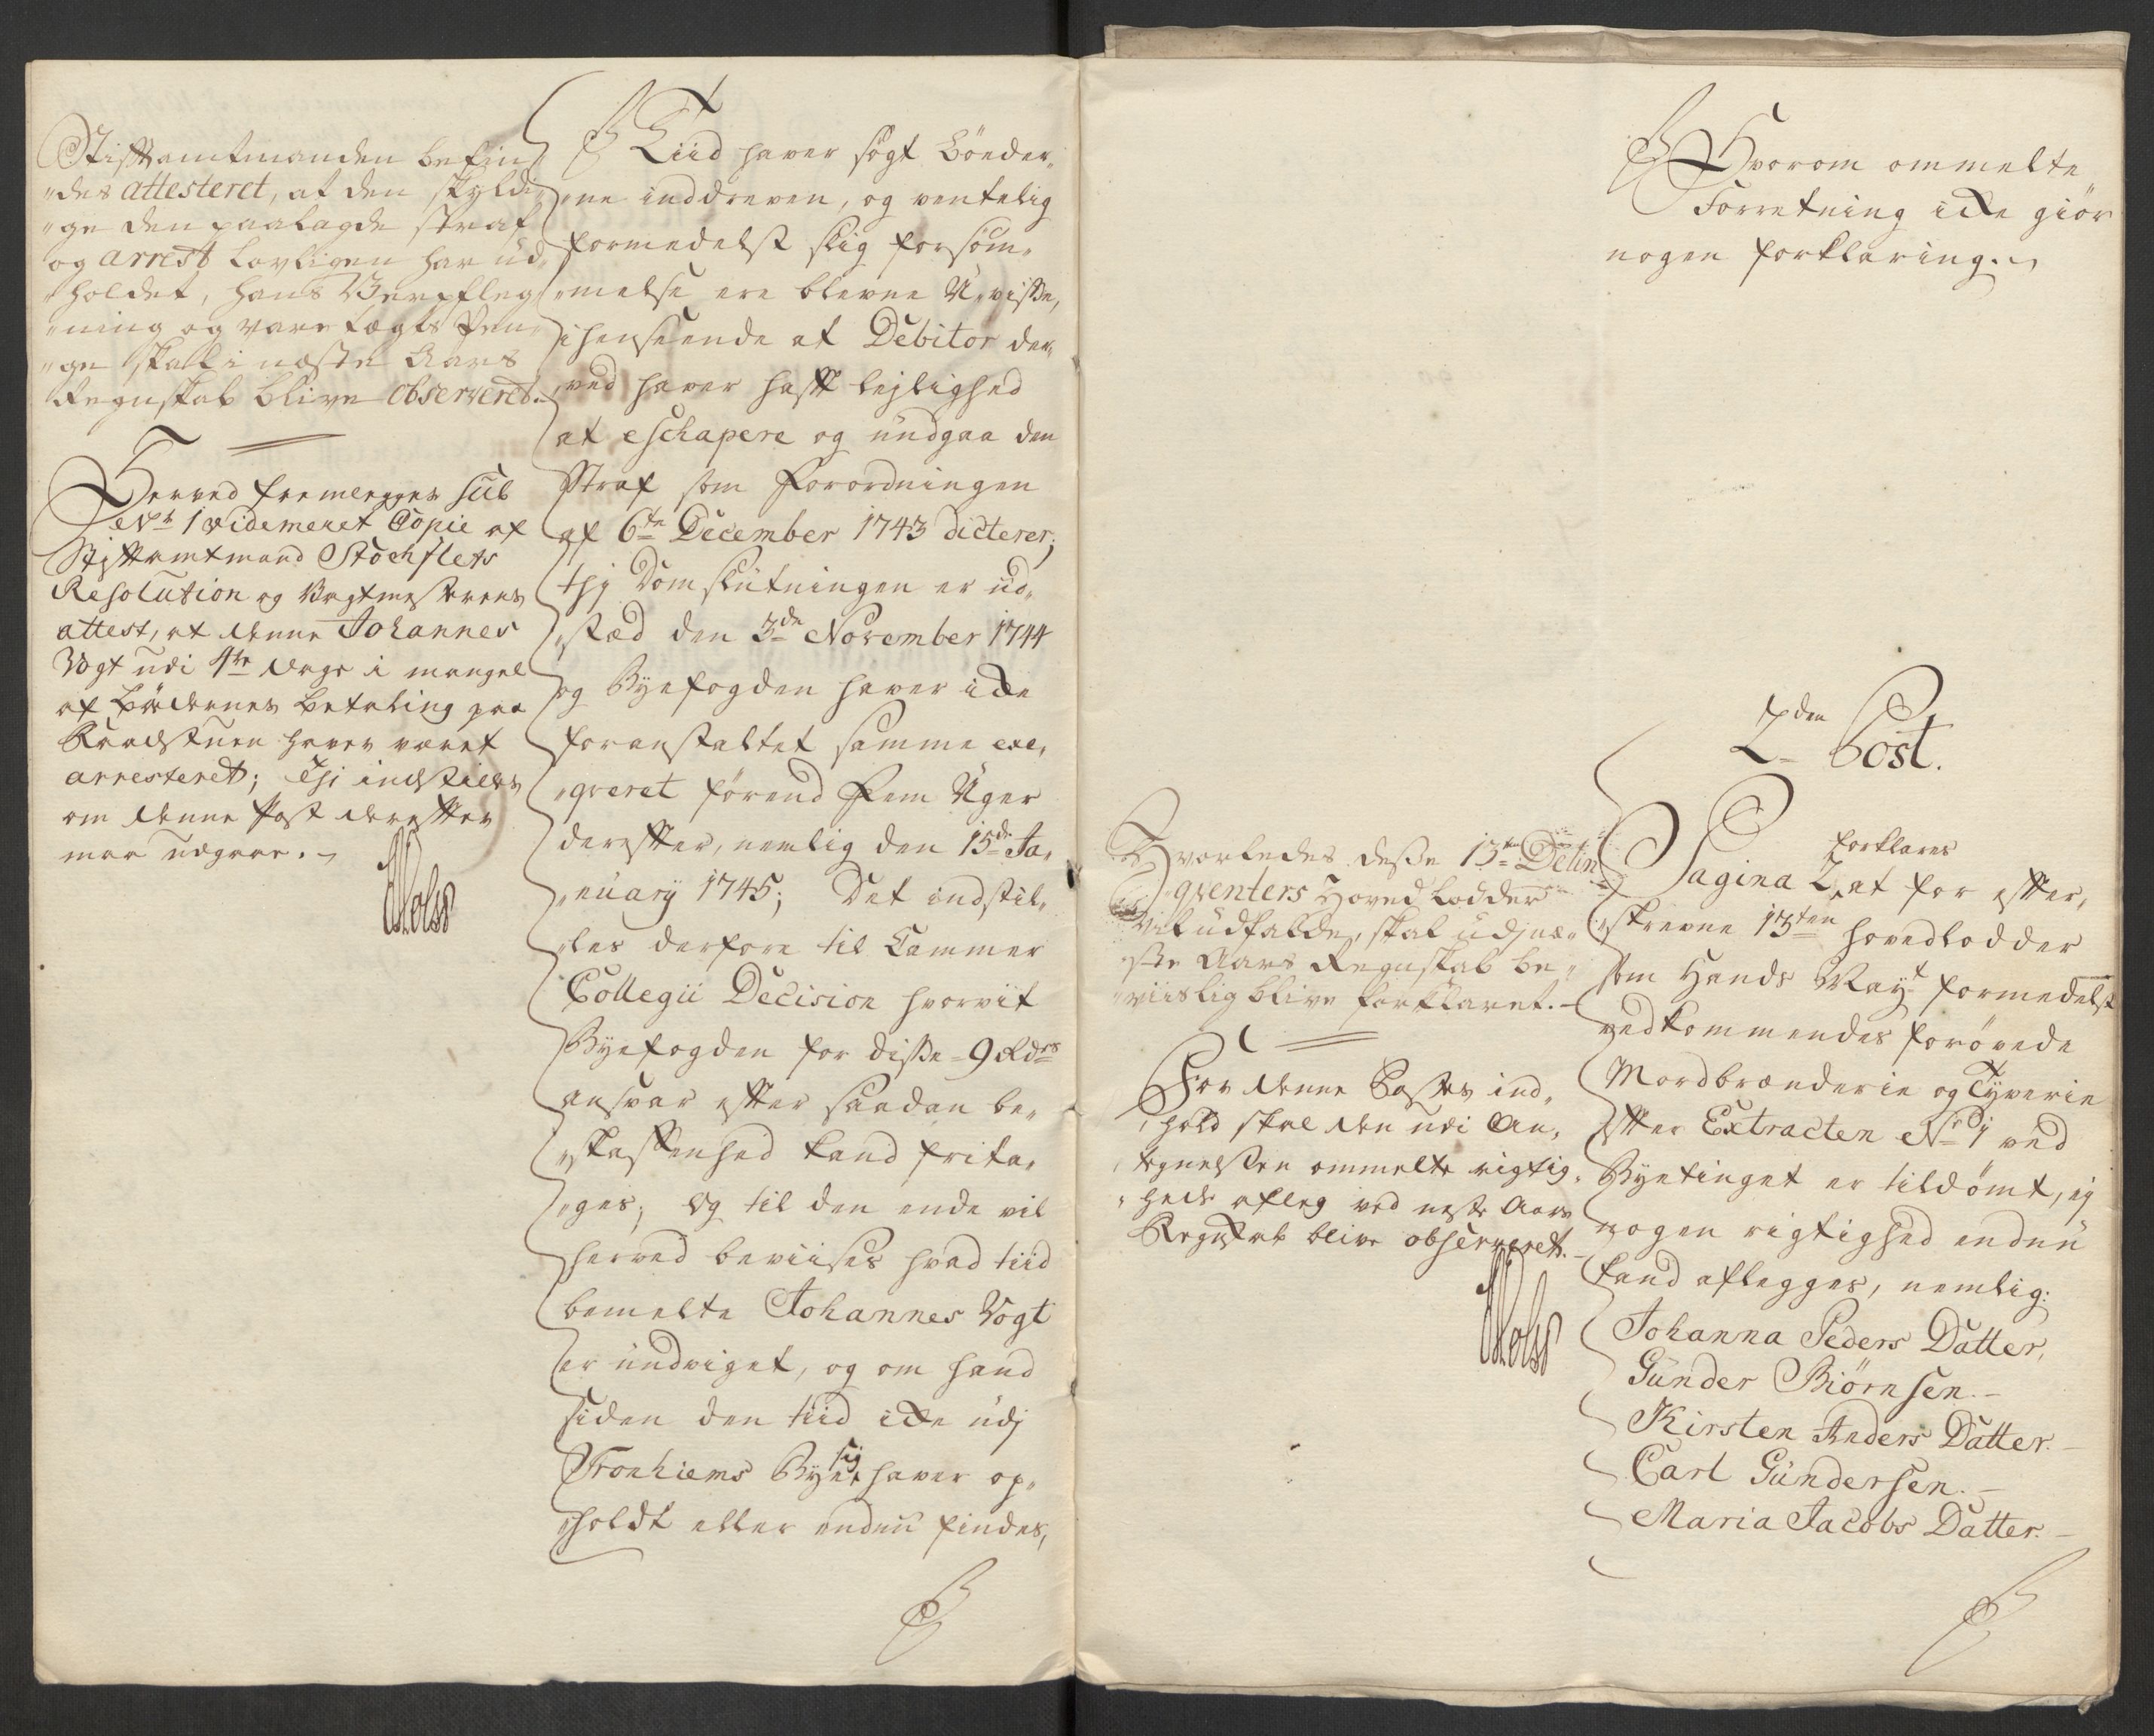 Stiftamtmanden befin„
„des attesteret, at den skyldi„
„ge den paalagde straf
og arrest lovligen har ud„
„holdet, hans Verpfleg„
„ning og varetægts Pen„
„ge skal i næste Aars
Regnskab blive observeret.
Herved fremlegges sub
No 1 vidimeret Copie af
Stiftamtmand Stochflets
Resolution og Vagtmesterens
attest, at denne Johannes
Vogt udi 4re Dage i mangel
af Bödernes betaling paa
Raadstuen haver været
arresteret; Thi indstilles
om denne Post derefter
maa udgaae.
Tiid haver søgt Bøeder„
„ne inddreven, og ventelig
formedelst slig forsøm„
„melse ere blevne U„visse,
i henseende at Debitor der„
„ved haver hafft lejlighed
at eschapere og undgaa den
Straf som Forordningen
af 6te December 1743 dicterer;
thj Domslutningen er ud„
„stæd den 3de November 1744
og Byefogden haver icke
foranstaltet samme exe„
„qveret førend Fem Uger
derefter, nemlig den 15de Ja„
„nuary 1745; Det indstil„
„les derfore til Cammer
Collegii Decision hvorvit
Byefogden for disse 9 Rdrs
ansvar efter saadan be„
„skaffenhed kand frita„
„ges; Og til den ende vil
herved beviises hvad tiid
bemelte Johannes Vogt
er undviget, og om hand
siden den tiid icke udj
Tronhiems Bye sig haver op„
„holdt eller endnu findes,
Hvorom ommelte
Forretning icke giör
nogen forklaring.
2den Post.
Hvorledes disse 13ten Delin„
„qventers Hoved Lodder
vil udfalde, skal udj næ„
„ste Aars Regnskab be„
„viislig blive forklaret.
For denne Postes ind„
„hold skal den udi An„
„tegnelsen ommelte rigtig„
„hed aflæg ved neste Aars
Regnskab blive observeret.
Pagina 2, forklares at for efter„
„skrevne 13ten hovedlodder
som Hands Mayt formedelst
vedkommendes forøvede
Mordbrænderie og Tyverie
efter Extracten No 1 ved
Byetinget er tildømt, ej
nogen rigtighed endnu
kand aflegges, nemlig:
Johanna Peders Datter,
Gunder Biörnsen.
Kirsten Anders Datter.
Carl Gundersen.
Maria Jacobs Datter.